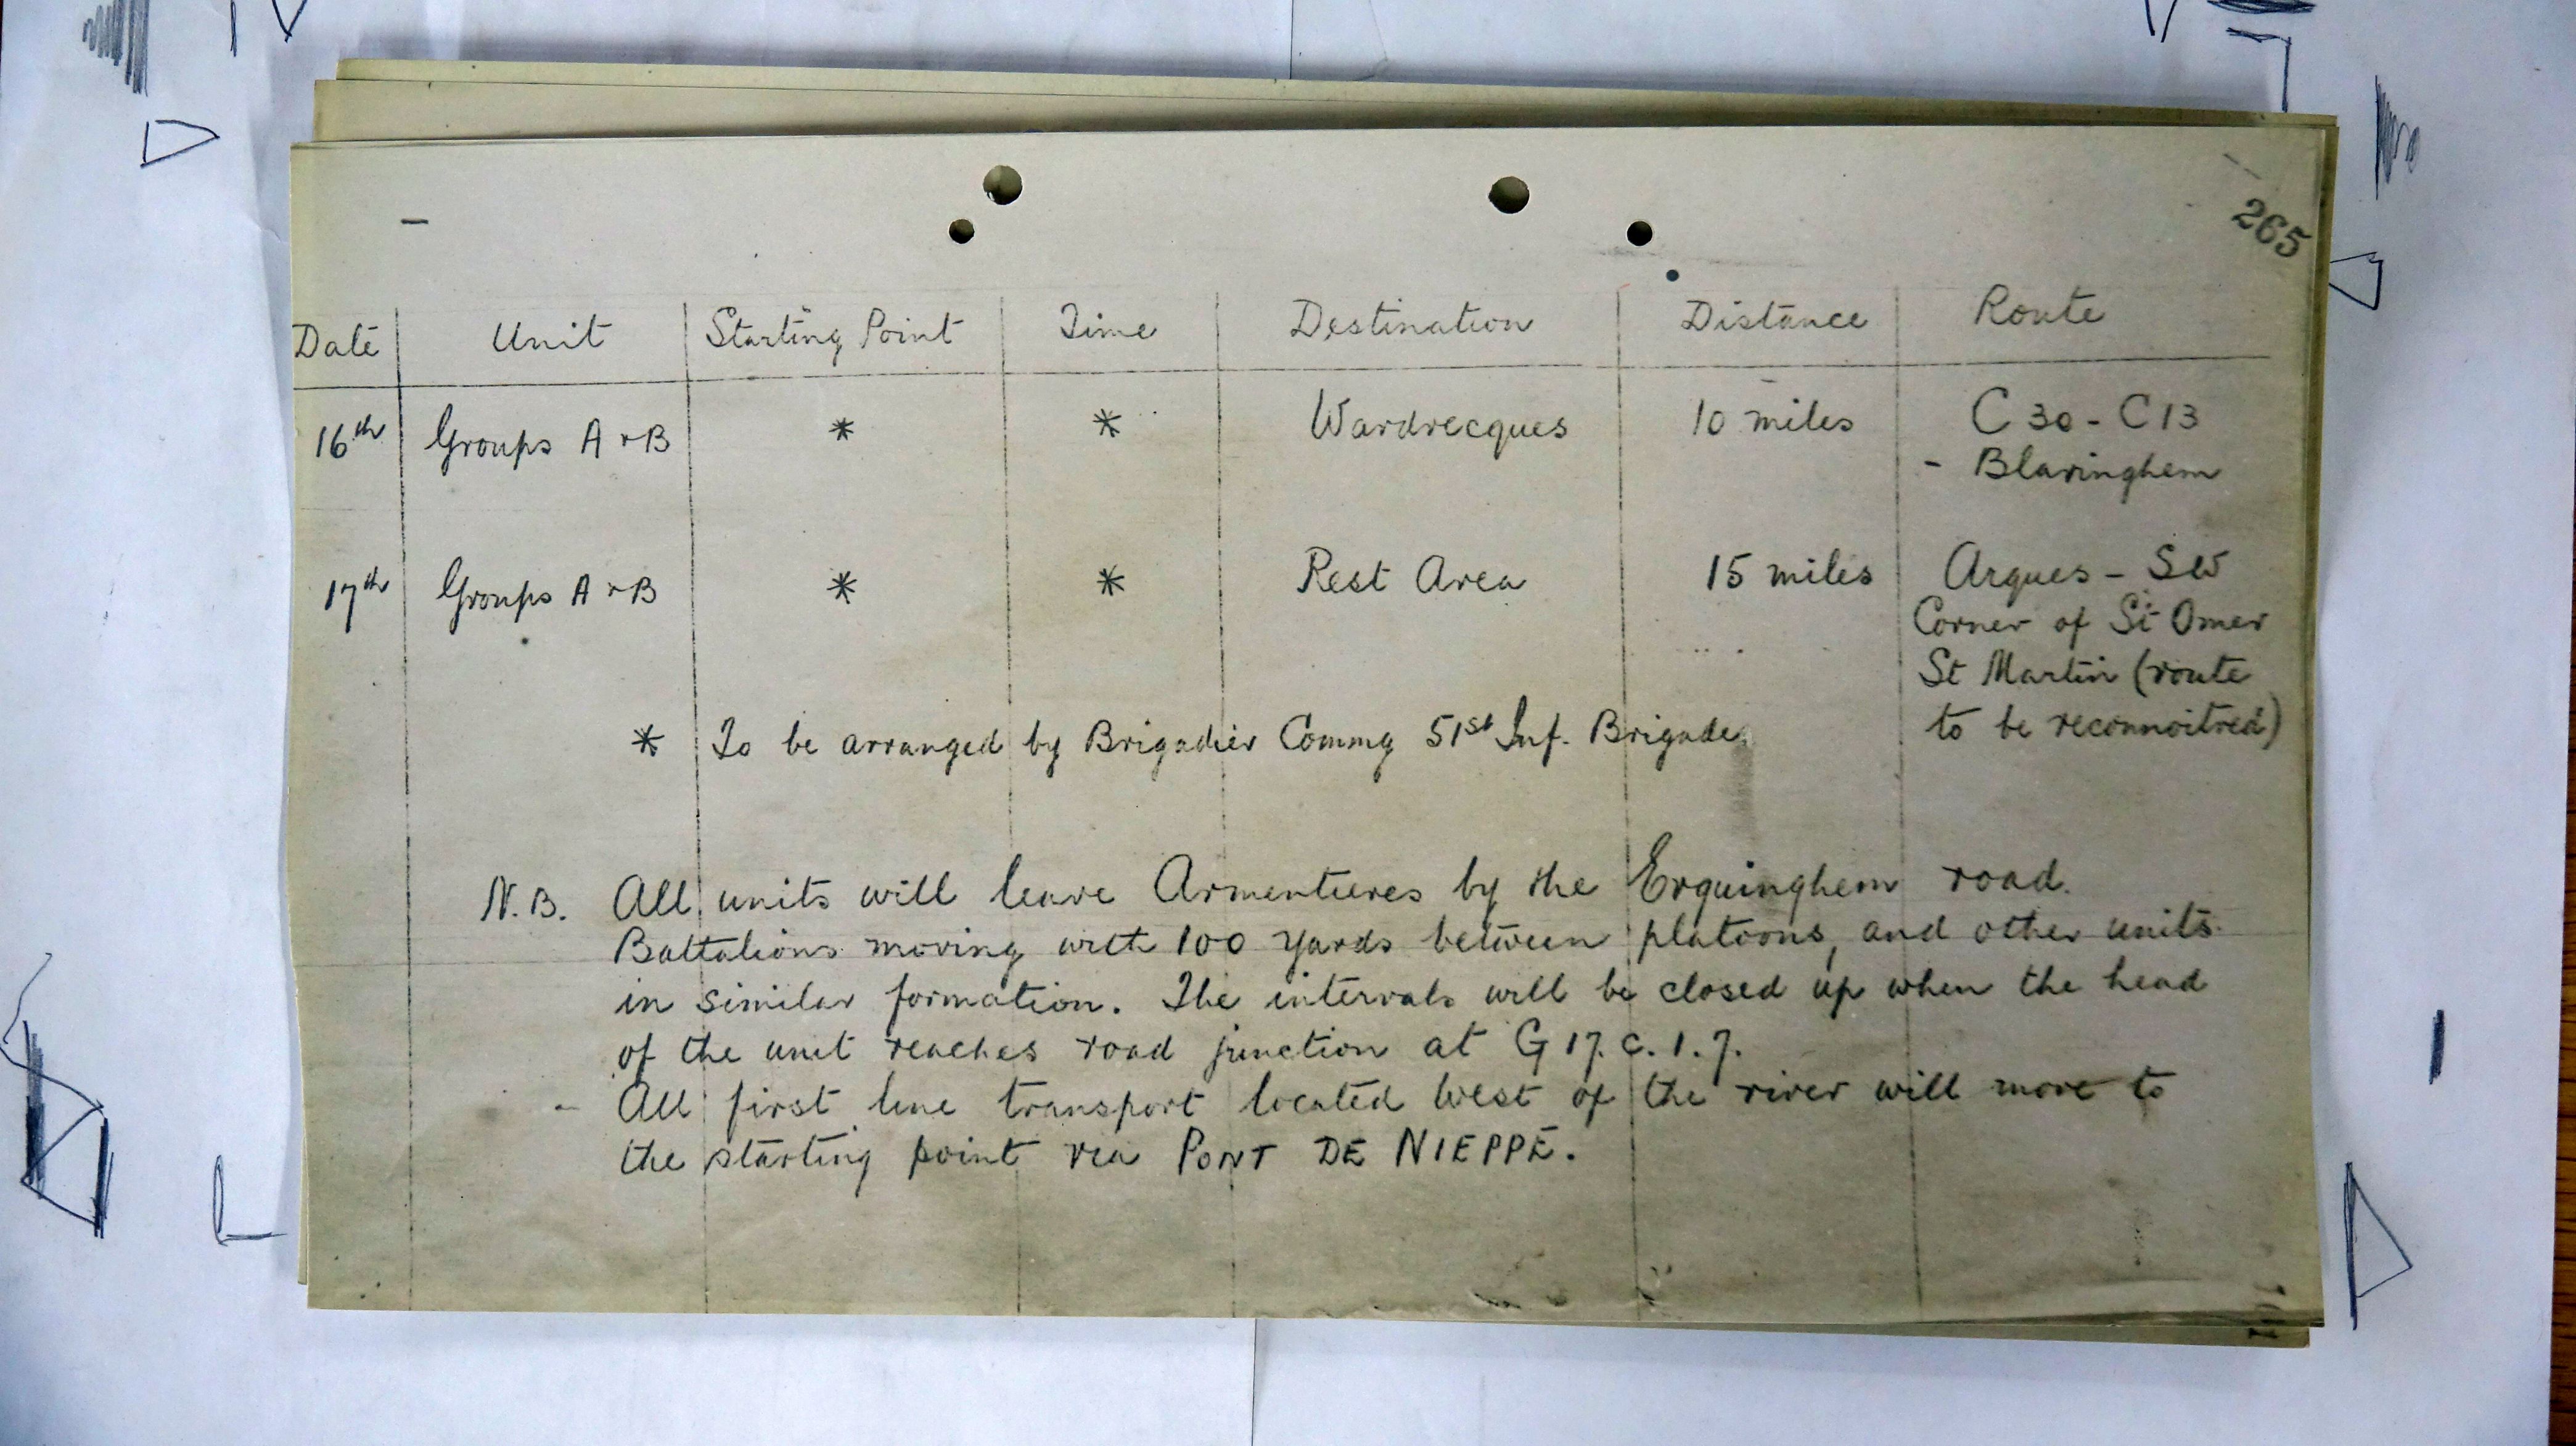 265
Date Unit Starting Point Time Destination Distance Route
16th Groups A + B * * Wardrecques 10 miles C 30 - C 13
- Blaringhem
17th Groups A + B * * Rest Area 15 miles Arques - SW
Corner of St Omer
St Martin (route
to be reconnoitred)
* To be arranged by Brigadier Commg 51st Inf. Brigade
N.B. All units will leave Armentieres by the Erquinghem road.
Battalions moving with 100 yards between platoons, and other units
in similar formation. The intervals will be closed up when the head
of the unit reaches road junction at G 17. c. 1. 7.
- All first line transport located West of the river will move to
the starting point via PONT DE NIEPPE.